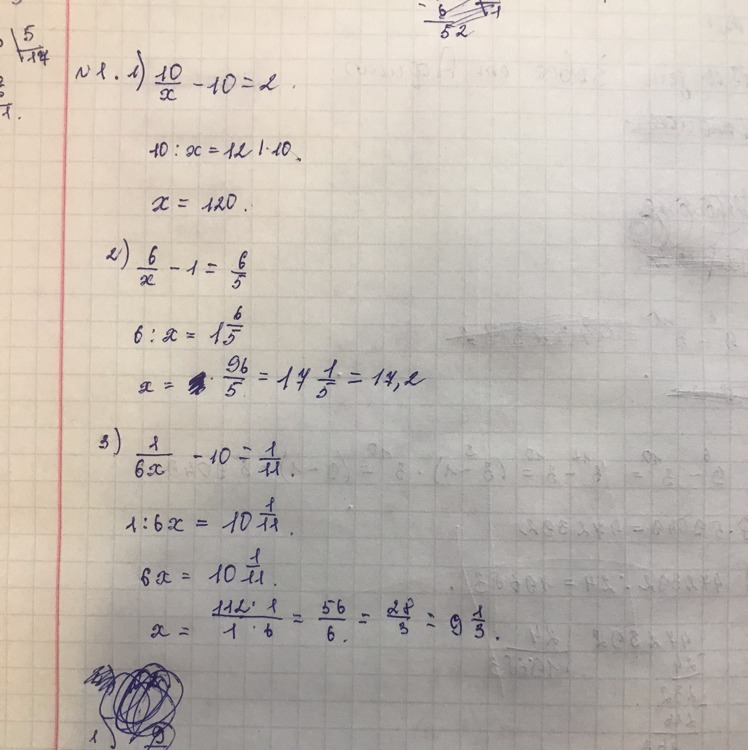 5
17
52
№1. 1) 10/x - 10 = 2.
10 : x = 12 | · 10.
x = 120.
2) 6/x - 1 = 6/5
6 : x = 1 6/5
x = · 96/5 = 17 1/5 = 17,2
3) 1/6x - 10 = 1/11.
1 : 6x = 10 1/11.
6x = 10 1/11.
x = 112 · 1/1 · 6 = 56/6. = 28/3 = 9 1/3.
1)